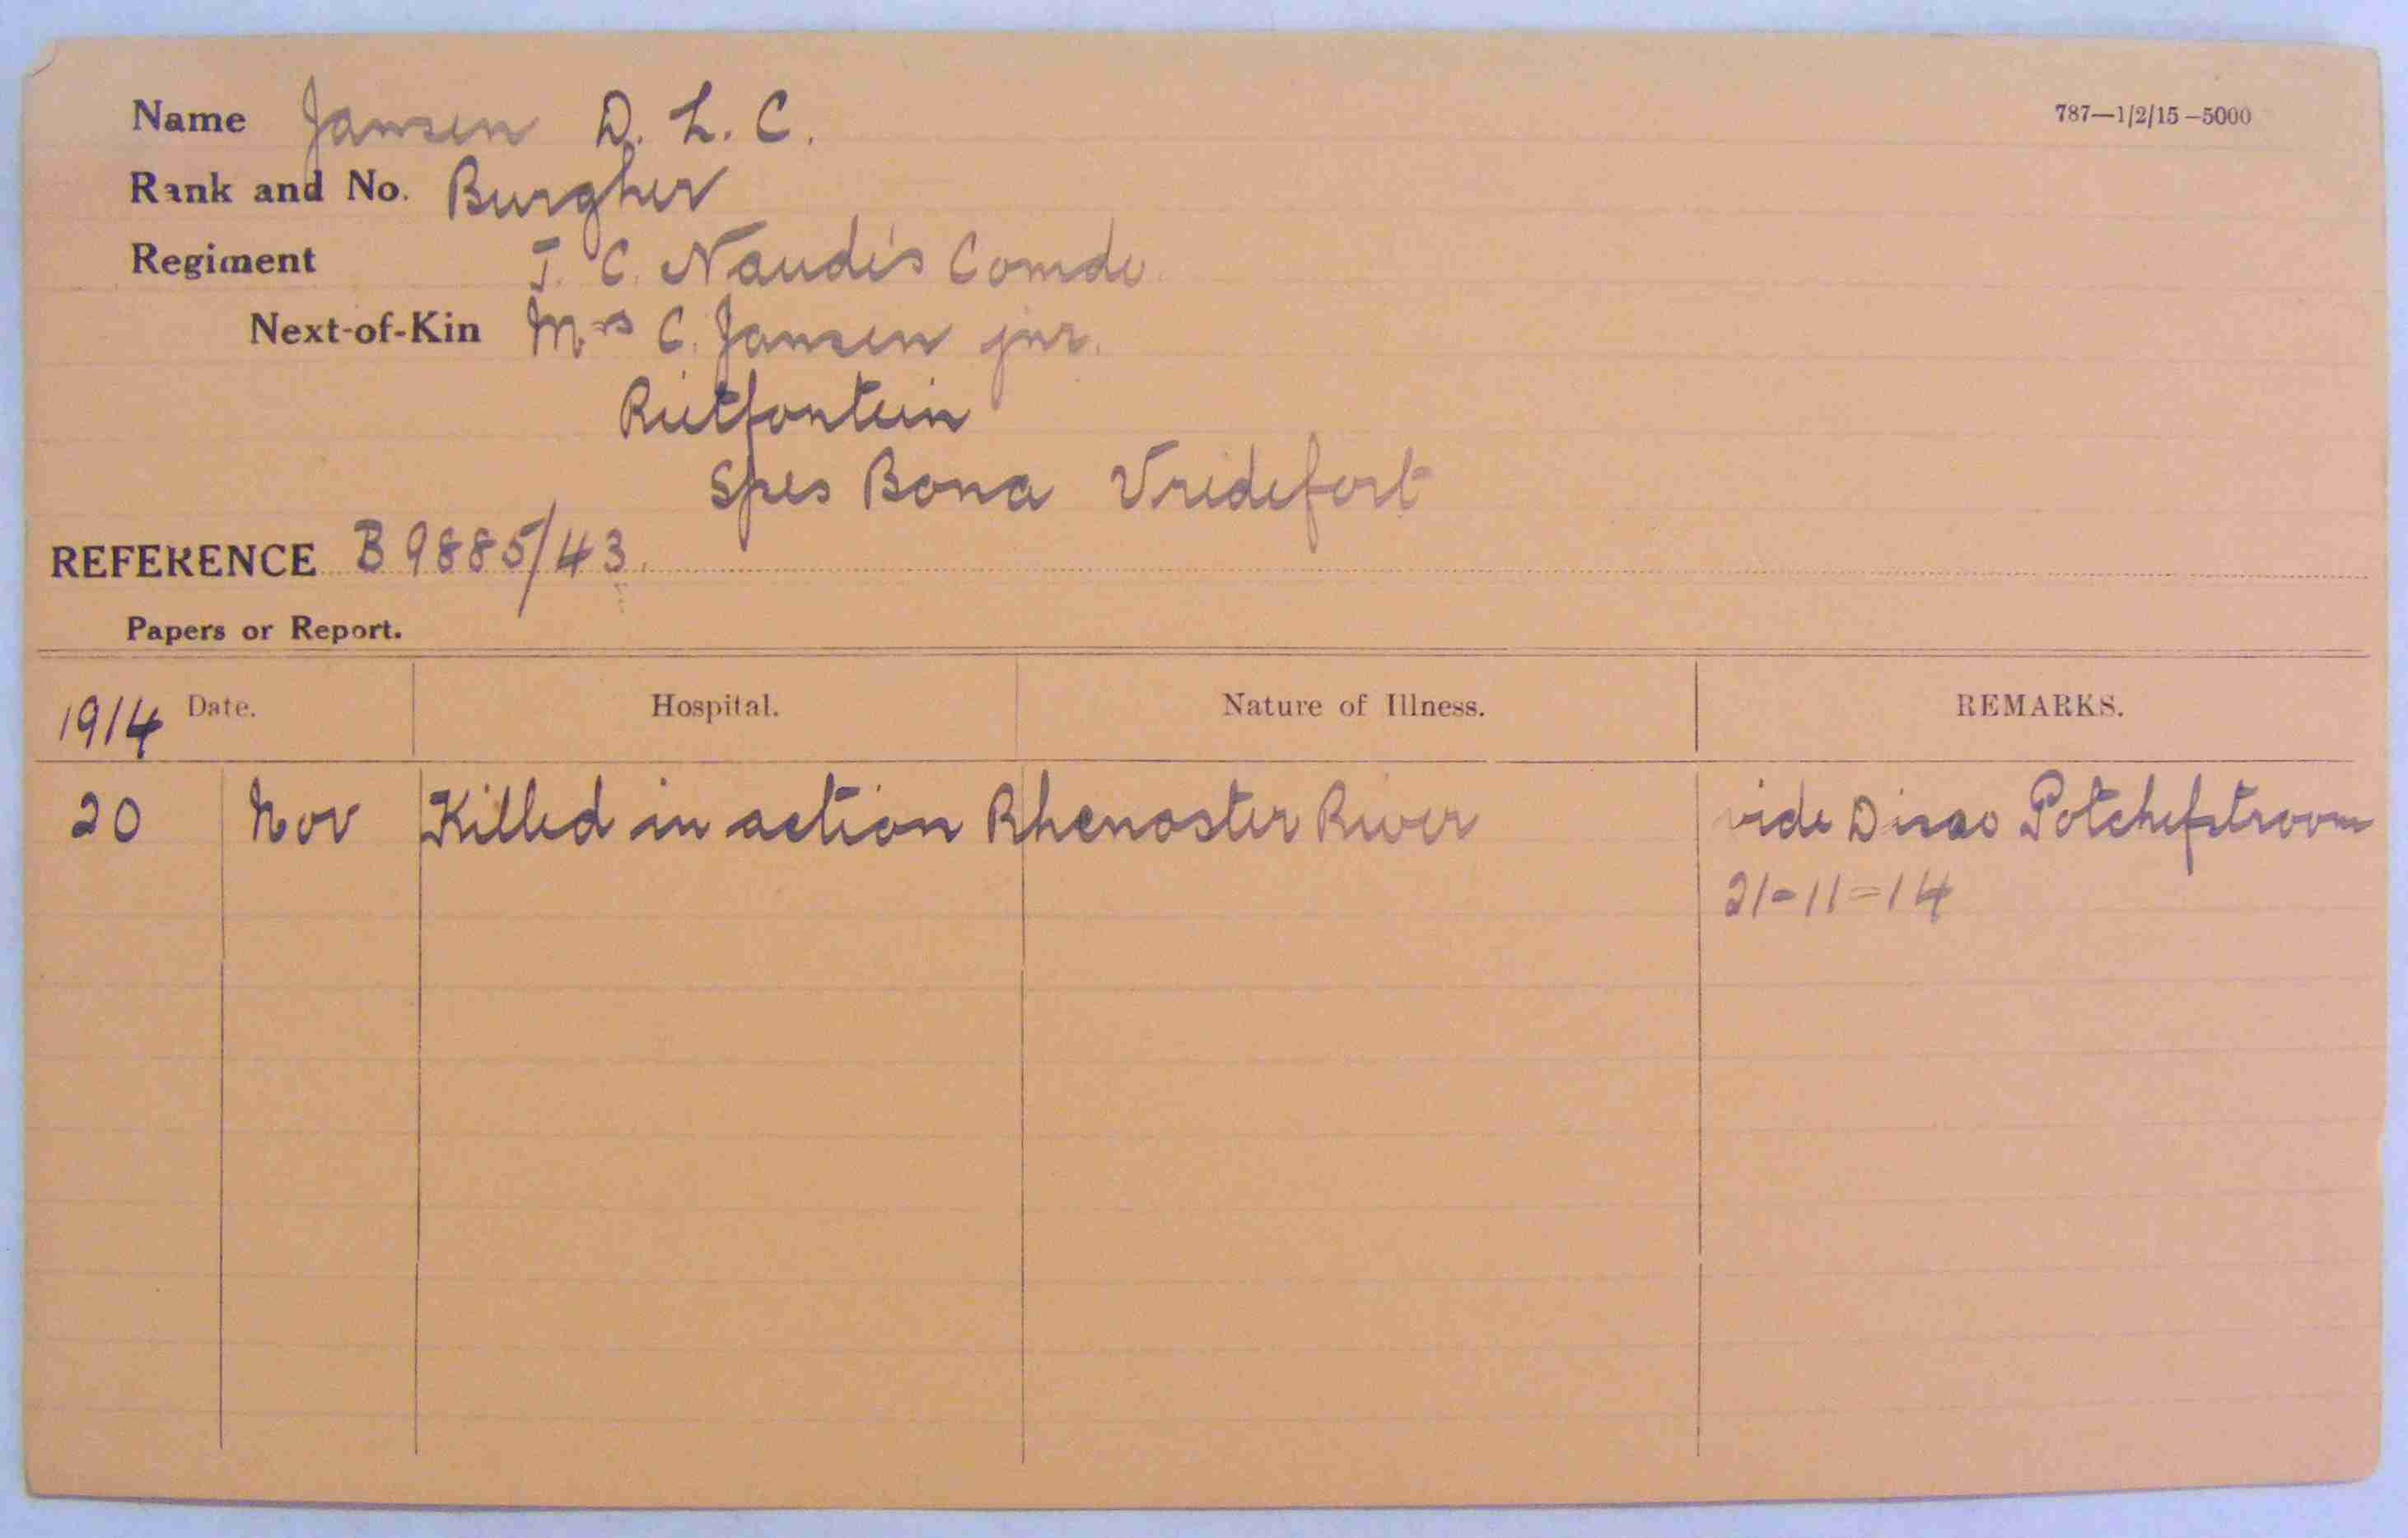 787—1/2/15—5000
Name Jansen D. L. C.
Rank and No. Burgher
Regiment J. C. Naude's Comdo
Next-of-Kin Mrs C. Jansen jnr.
Rietfontein
Spes Bona Vredefort
REFERENCE B 9885/43.
Papers or Report.
1914 Date. Hospital. Nature of Illness. REMARKS.
20 Nov Killed in action Rhenoster River vide Disao Potchefstroom
21-11-14